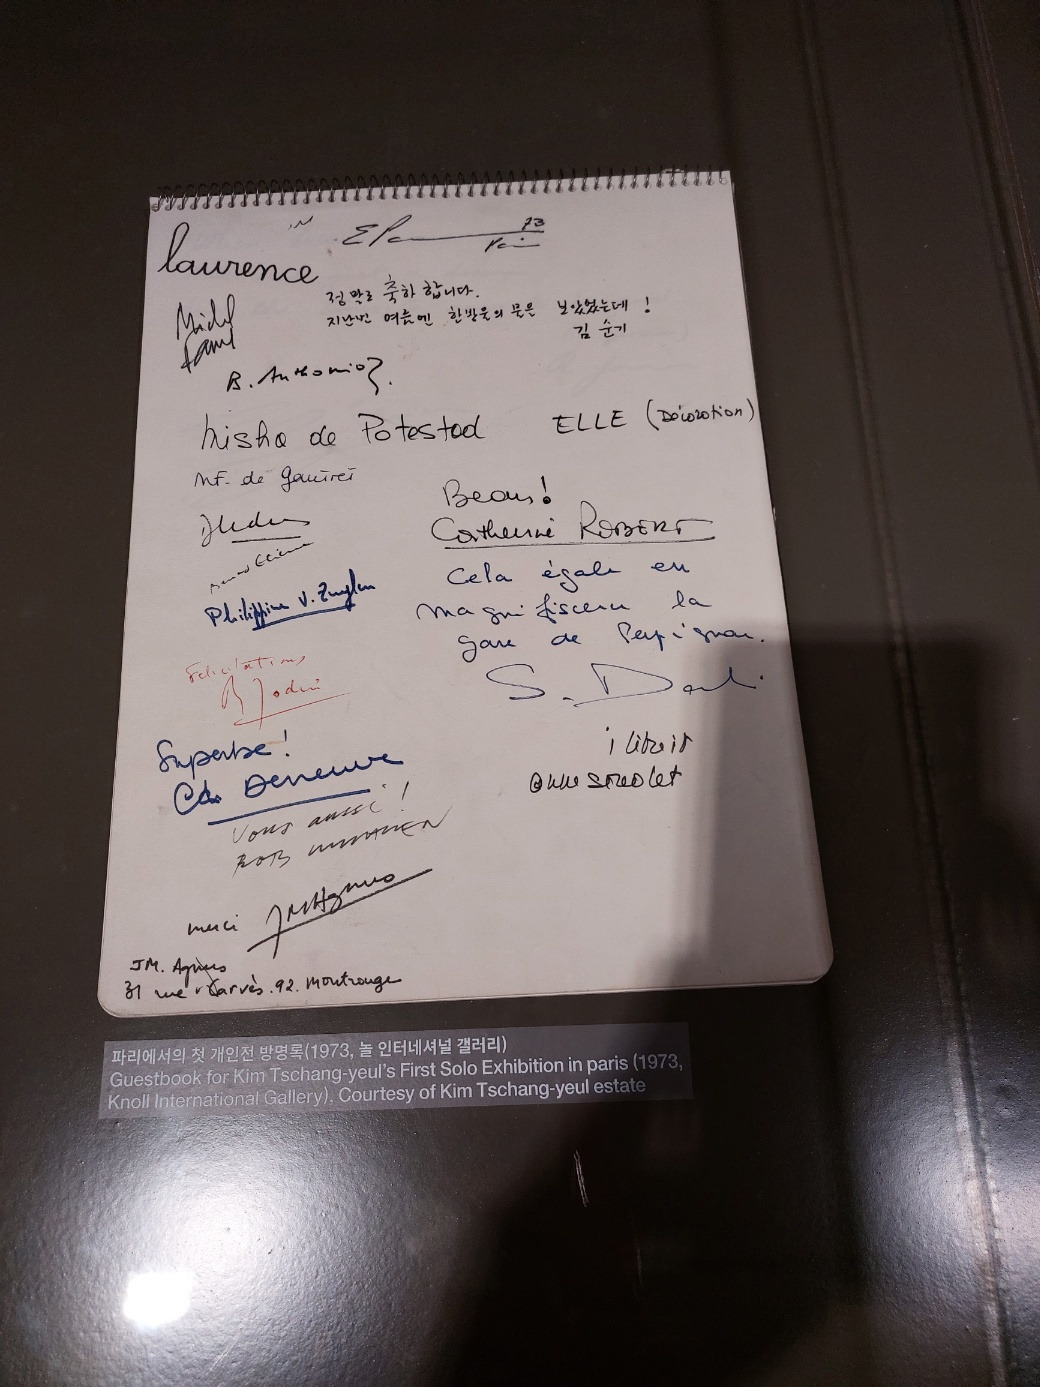 laurence
73
정말로 축하 합니다.
지난번 여름엔 한방울의 물은 보았었는데 !
김 순기
Michel
B. Anthonioz.
Misha de Potestad ELLE (Décoration)
MF. de
Beau!
Catherine ROBERT
Cela égale en
magnifiscence la
gare de Perpignan.
S. Dali
Philippine V.
Félicitations
Superbe!
Deneuve
Vous aussi!
ROB
merci JM Agnus
JM. Agnus
31 rue Carvès. 92. Montrouge
파리에서의 첫 개인전 방명록(1973, 놀 인터네셔널 갤러리)
Guestbook for Kim Tschang-yeul's First Solo Exhibition in paris (1973,
Knoll International Gallery). Courtesy of Kim Tschang-yeul estate